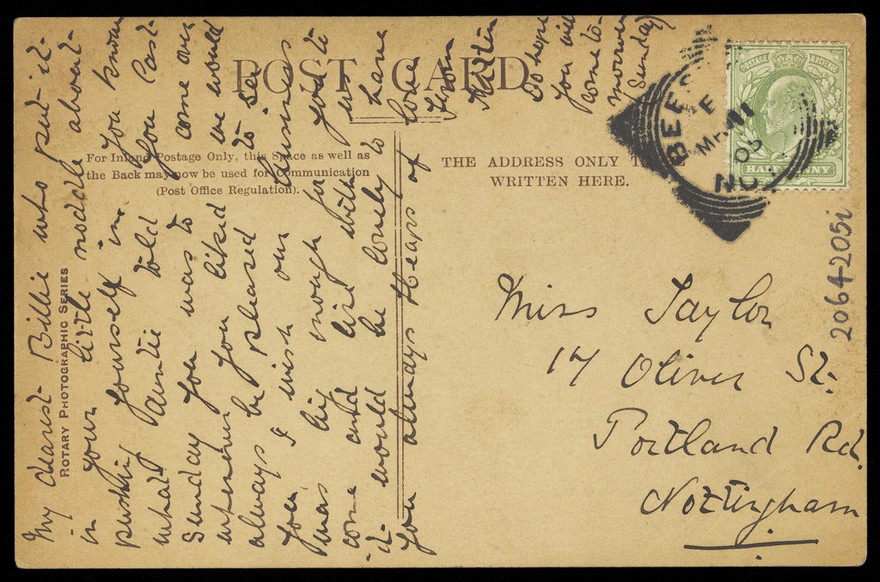 POST CARD
For Inland Postage Only, this Space as well as
the Back may now be used for Communication
(Post Office Regulation).
THE ADDRESS ONLY TO
WRITTEN HERE.
ROTARY PHOTOGRAPHIC SERIES
My dearest Billie who put it
in your little noddle about
pushing yourself in you know
what Auntie told you last
Sunday you was to come over
whenever you liked we would
always be pleased to see
you I wish our business
was big enough for you to
come and live with us
it would be lovely to have
you always Heaps of love
from
Do hope
you will
come to-
morrow
Sunday
BEES
E
MR 11
05
NO
HALFPENNY
POSTAGE REVENUE
Miss Taylor
17 Oliver St.
Portland Rd.
Nottingham
2064205i